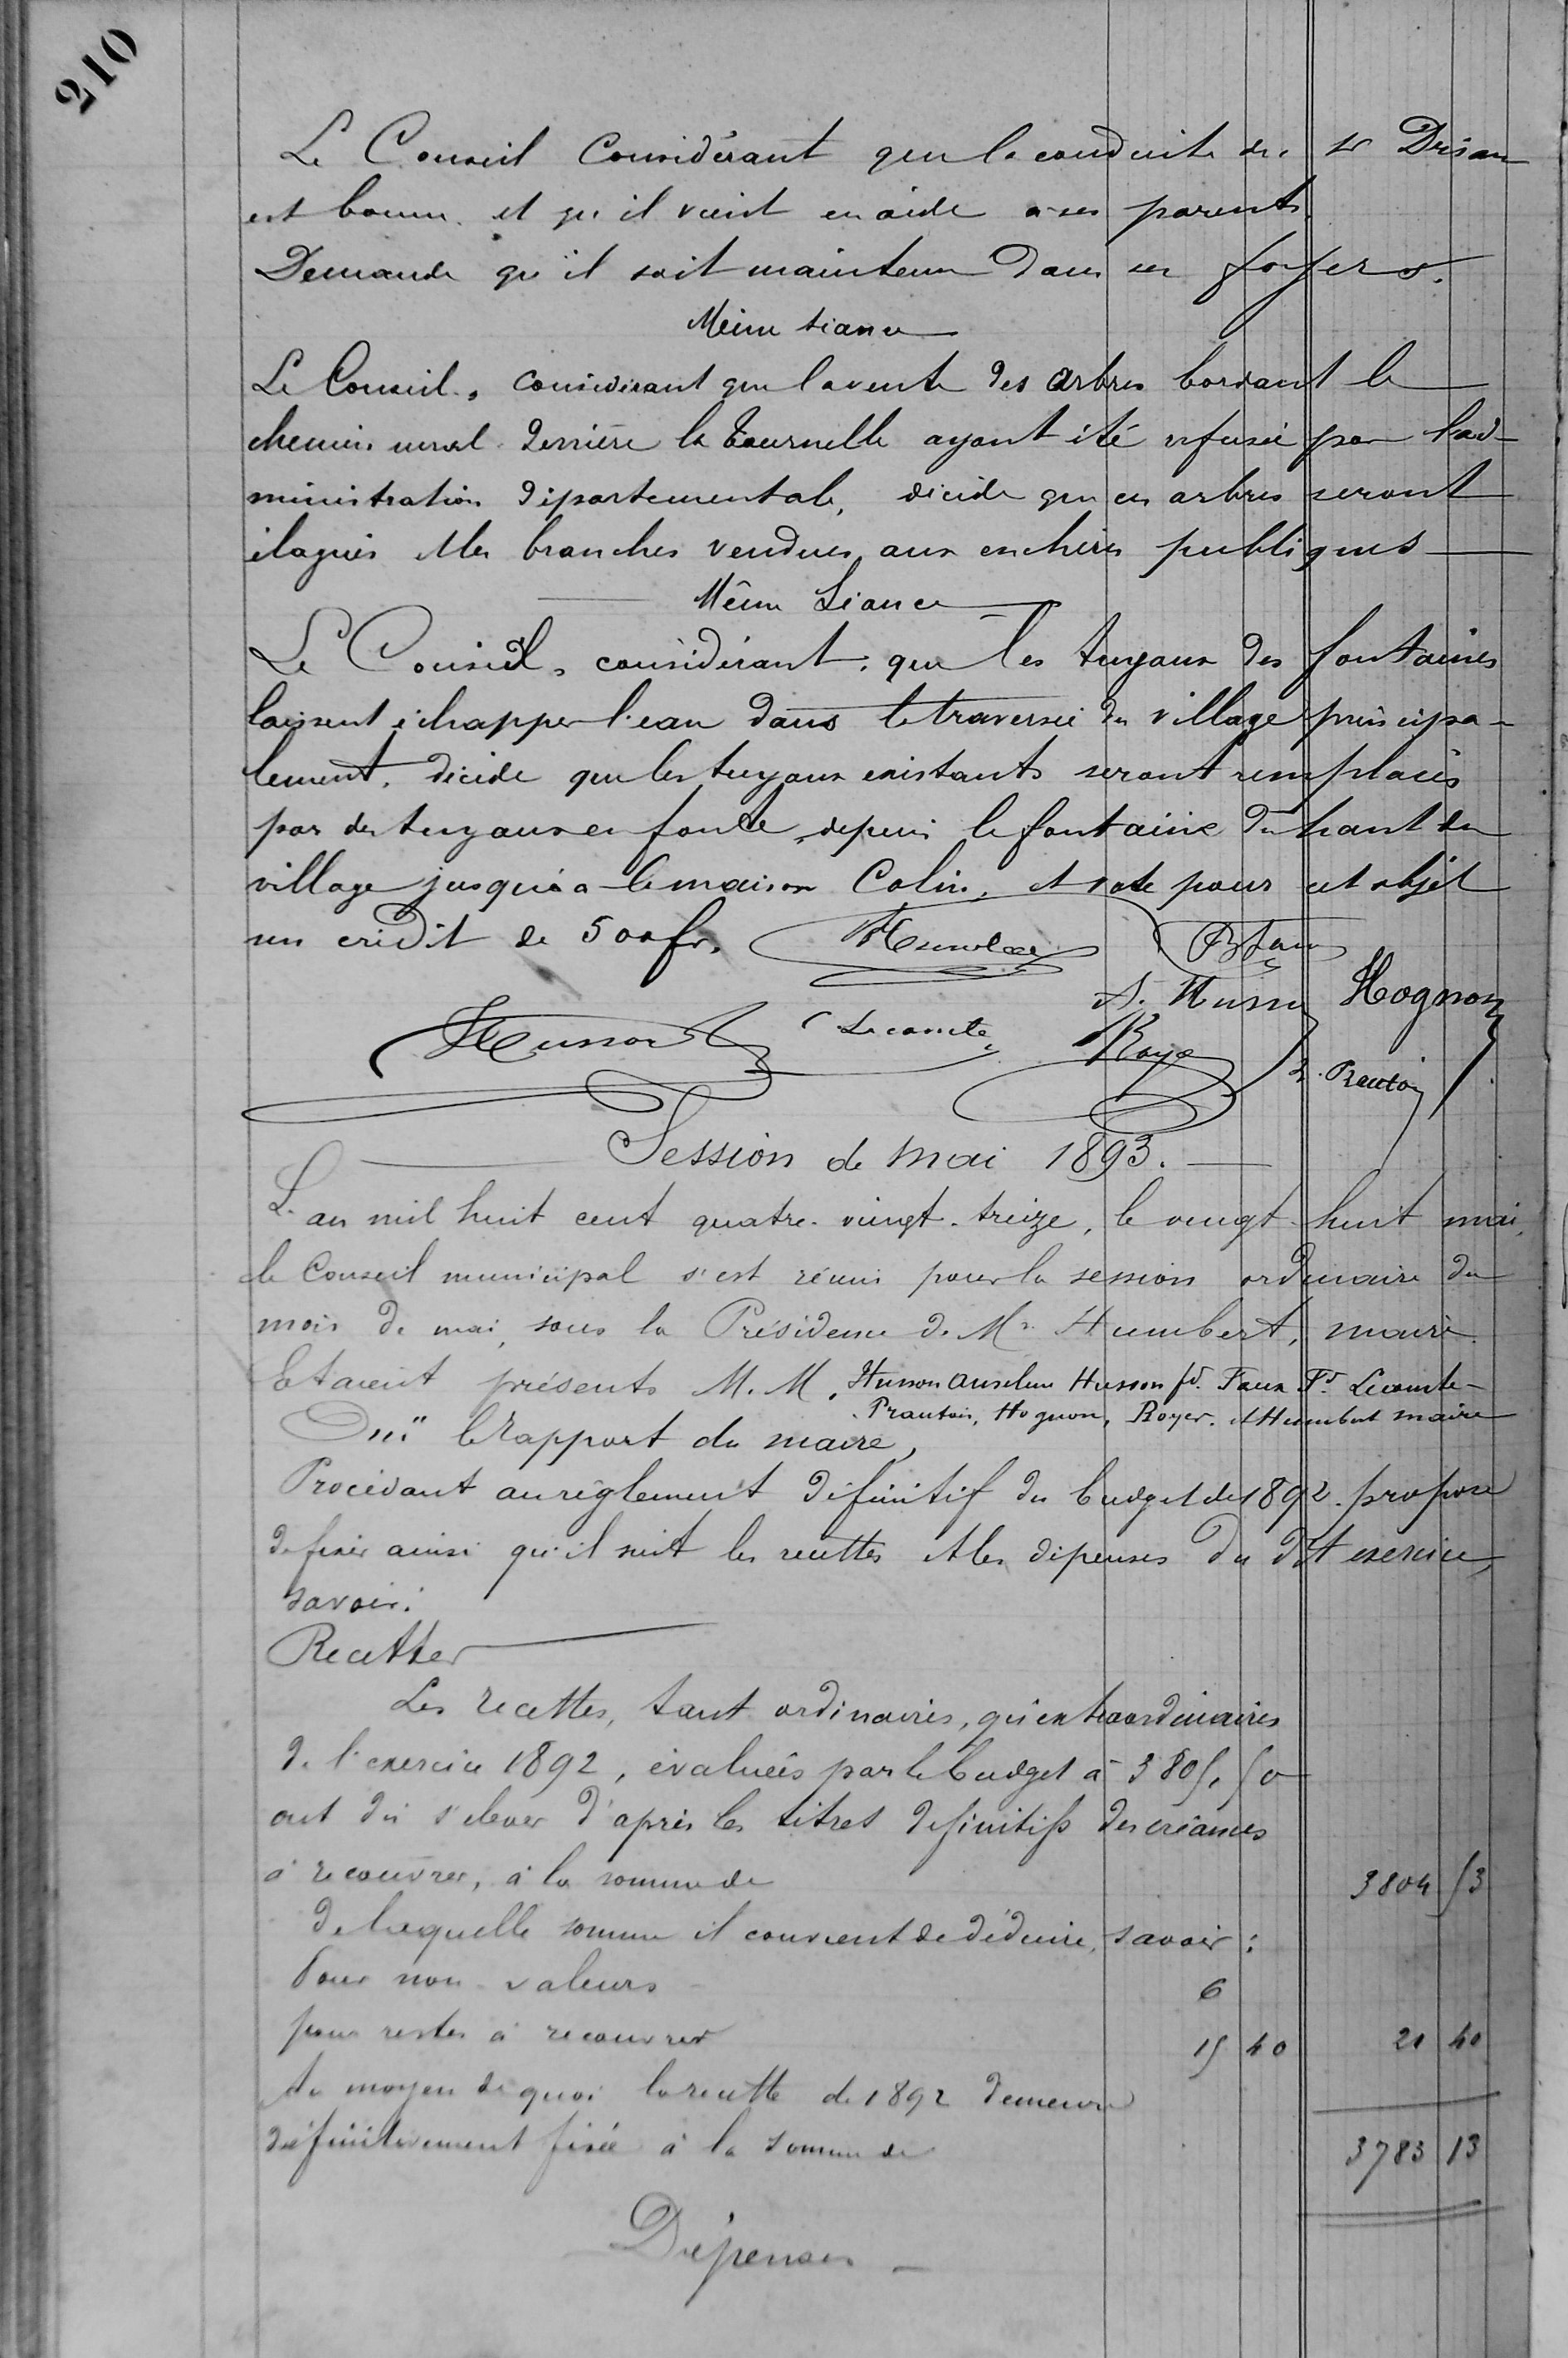 210
Le Conseil Considérant que la conduite du Sr
est bonne et qu'il vient en aide à ses parents.
Demande qu'il soit maintenu dans ses foyers.
Même séance
Le Conseil, considérant que la vente des arbres bordant le
chemin rural derrière la Tournelle ayant été refusée par l'ad-
ministration départementale, décide que ces arbres seront
élagués et les branches vendues aux enchères publiques
Même Séance
Le Conseil, considérant que les tuyaux des fontaines
laissent échapper l'eau dans la traversée du village principa-
lement, décide que les tuyaux existants seront remplacés
par des tuyaux en fonte, depuis la fontaine du haut du
village jusqu'à la maison Colin, et vote pour cet objet
un crédit de 500 fr.
A. Husson Hognon
Husson Lecomte Royer
Session de Mai 1893.
L'an mil huit cent quatre-vingt-treize, le vingt-huit mai,
le Conseil municipal s'est réuni pour la session ordinaire du
mois de mai, sous la Présidence de Mr Humbert, maire.
Etaient présents M.M. Husson Anselme Husson fd. Faux Fd. Lecomte-
Prautois, Hognon, Royer. et Humbert maire
Ouï le Rapport du maire,
Procédant au règlement définitif du budget de 1892. propose
de fixer ainsi qu'il suit les recettes et les dépenses du dit exercice,
savoir:
Recettes
Les recettes, tant ordinaires, qu'extraordinaires
de l'exercice 1892, évaluées par le budget à 3805,50
ont dû s'élever d'après les titres définitifs des créances
à recouvrer, à la somme de 3804 53
de laquelle somme il convient de déduire, savoir:
Pour non-valeurs 6
pour restes à recouvrer 15 40 21 40
Au moyen de quoi la recette de 1892 demeure
définitivement fixée à la somme de 3783 13
Dépenses